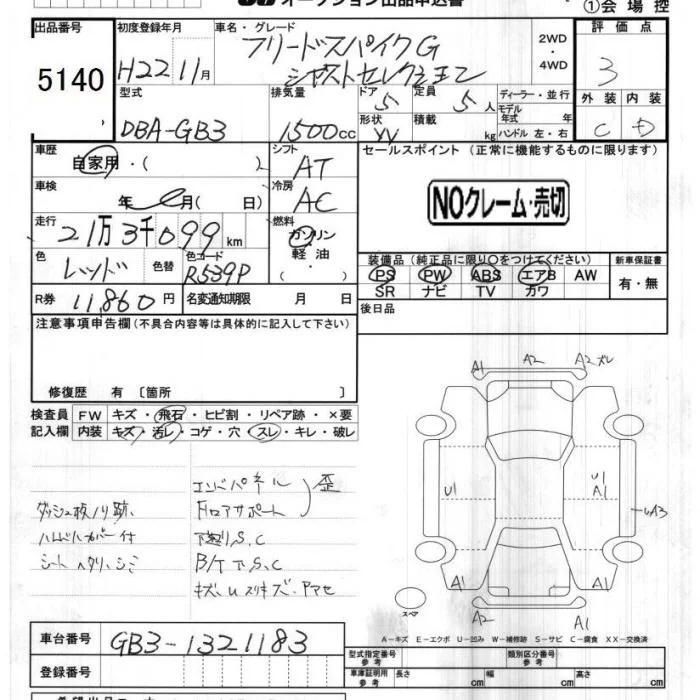 オークション出品申込書
①会場控
出品番号
5140
初度登録年月
H22 11月
車名・グレード
フリードスパイクG
ジャストセレクション
2WD
・
4WD
評価点
3
外装 内装
C D
型式
DBA-GB3
排気量
1500cc
ドア 5
定員 5人
形状 W
積載 kg
ディーラー・並行
モデル年式 年
ハンドル 左・右
車歴
自家用・( )
シフト
AT
車検
年 月( 日)
冷房
AC
走行
21万3千099km
燃料
ガソリン
軽油
・( )
色
レッド
色替
色コード
R539P
R券 11,860円
名変通知期限 月 日
セールスポイント (正常に機能するものに限ります)
NOクレーム・売切
装備品(純正品に限り○をつけてください)
PS PW ABS エアB AW
SR ナビ TV カワ
新車保証書
有・無
後日品
注意事項申告欄(不具合内容等は具体的に記入して下さい)
修復歴 有 〔箇所 〕
検査員 FW キズ・飛石・ヒビ割・リペア跡・×要
記入欄 内装 キズ・汚レ・コゲ・穴・スレ・キレ・破レ
ダッシュ板ノリ跡、
ハンドルカバー付
シートヘタリ、シミ
エンドパネル
Fロアサポート
歪
下廻りS、C
B/T下S、C
キズ、Uスリキズ、Pアセ
A1 A2 A2ズレ
U1 U1
A1 UA3
A1 A1
スペア
A2 A1
A-キズ E-エクボ U-凹み W-補修跡 S-サビ C-腐食 XX-交換済
車台番号 GB3-1321183
登録番号
型式指定番号
参考
類別区分番号
参考
車庫証明用
参考
長さ cm 幅 cm 高さ cm